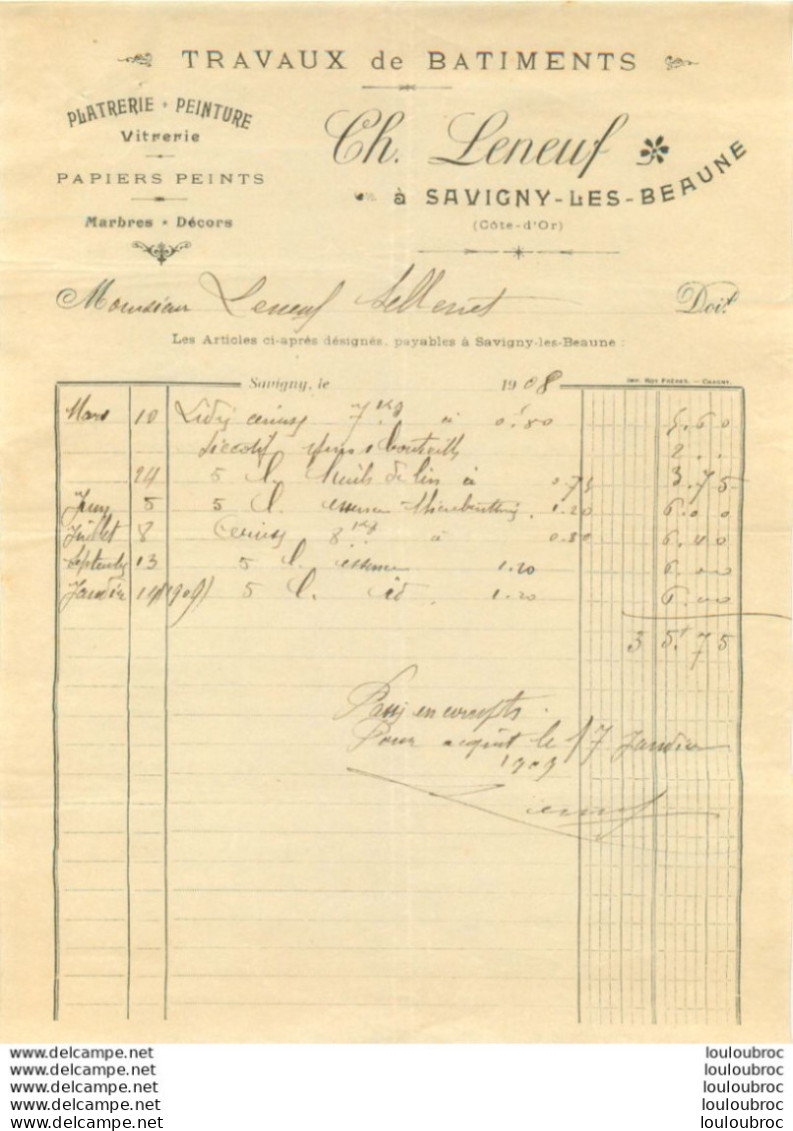 TRAVAUX de BATIMENTS
PLATRERIE • PEINTURE
Vitrerie
PAPIERS PEINTS
Marbres • Décors
Ch. Leneuf
à SAVIGNY-LES-BEAUNE
(Côte-d'Or)
Monsieur Leneuf Doit
Les Articles ci-après désignés, payables à Savigny-les-Beaune :
Savigny, le 1908
IMP. ROY FRÈRES. — CHAGNY.
Mars 10 7 kg à 0f.80 5.60
Siccatif 2..
24 5 l. huile de lin à 0.75 3.75
Juin 5 5 l. essence 1.20 6.00
Juillet 8 8 kg à 0.80 6.40
Septembre 13 5 l. essence 1.20 6.00
Janvier 14 (1909) 5 l. id. 1.20 6.00
35f.75
en compte.
Pour acquit le 17 Janvier
1909
Leneuf
www.delcampe.net louloubroc
www.delcampe.net louloubroc
www.delcampe.net louloubroc
www.delcampe.net louloubroc
www.delcampe.net louloubroc